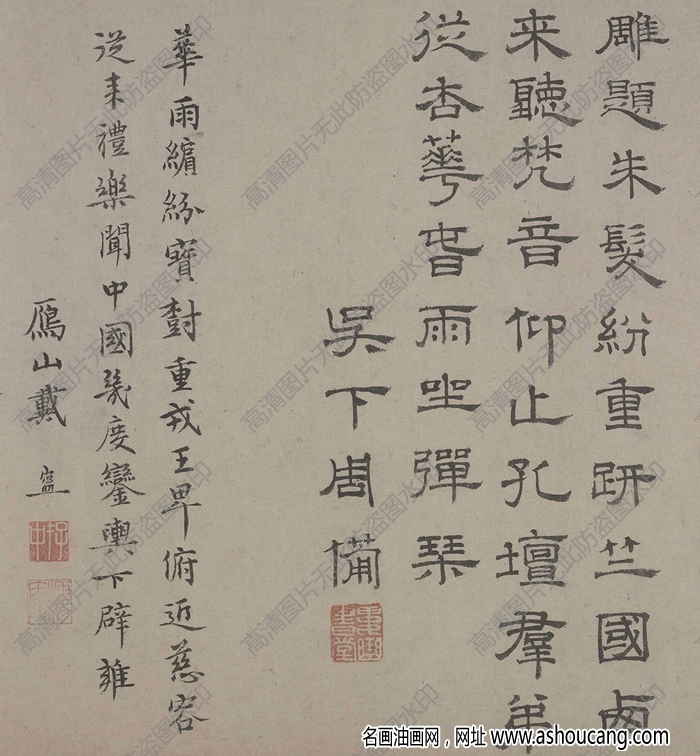 雕題朱髮紛重趼竺國卥
来聽梵音仰止孔壇羣弟
從杏華旹雨坐彈琴
吳下周備
華雨繽紛寶樹重戎王卑俯近慈容
從来禮樂聞中國幾度鑾輿下辟雍
鴈山戴
高清图片无此防盗图水印
名画油画网，网址 www.ashoucang.com